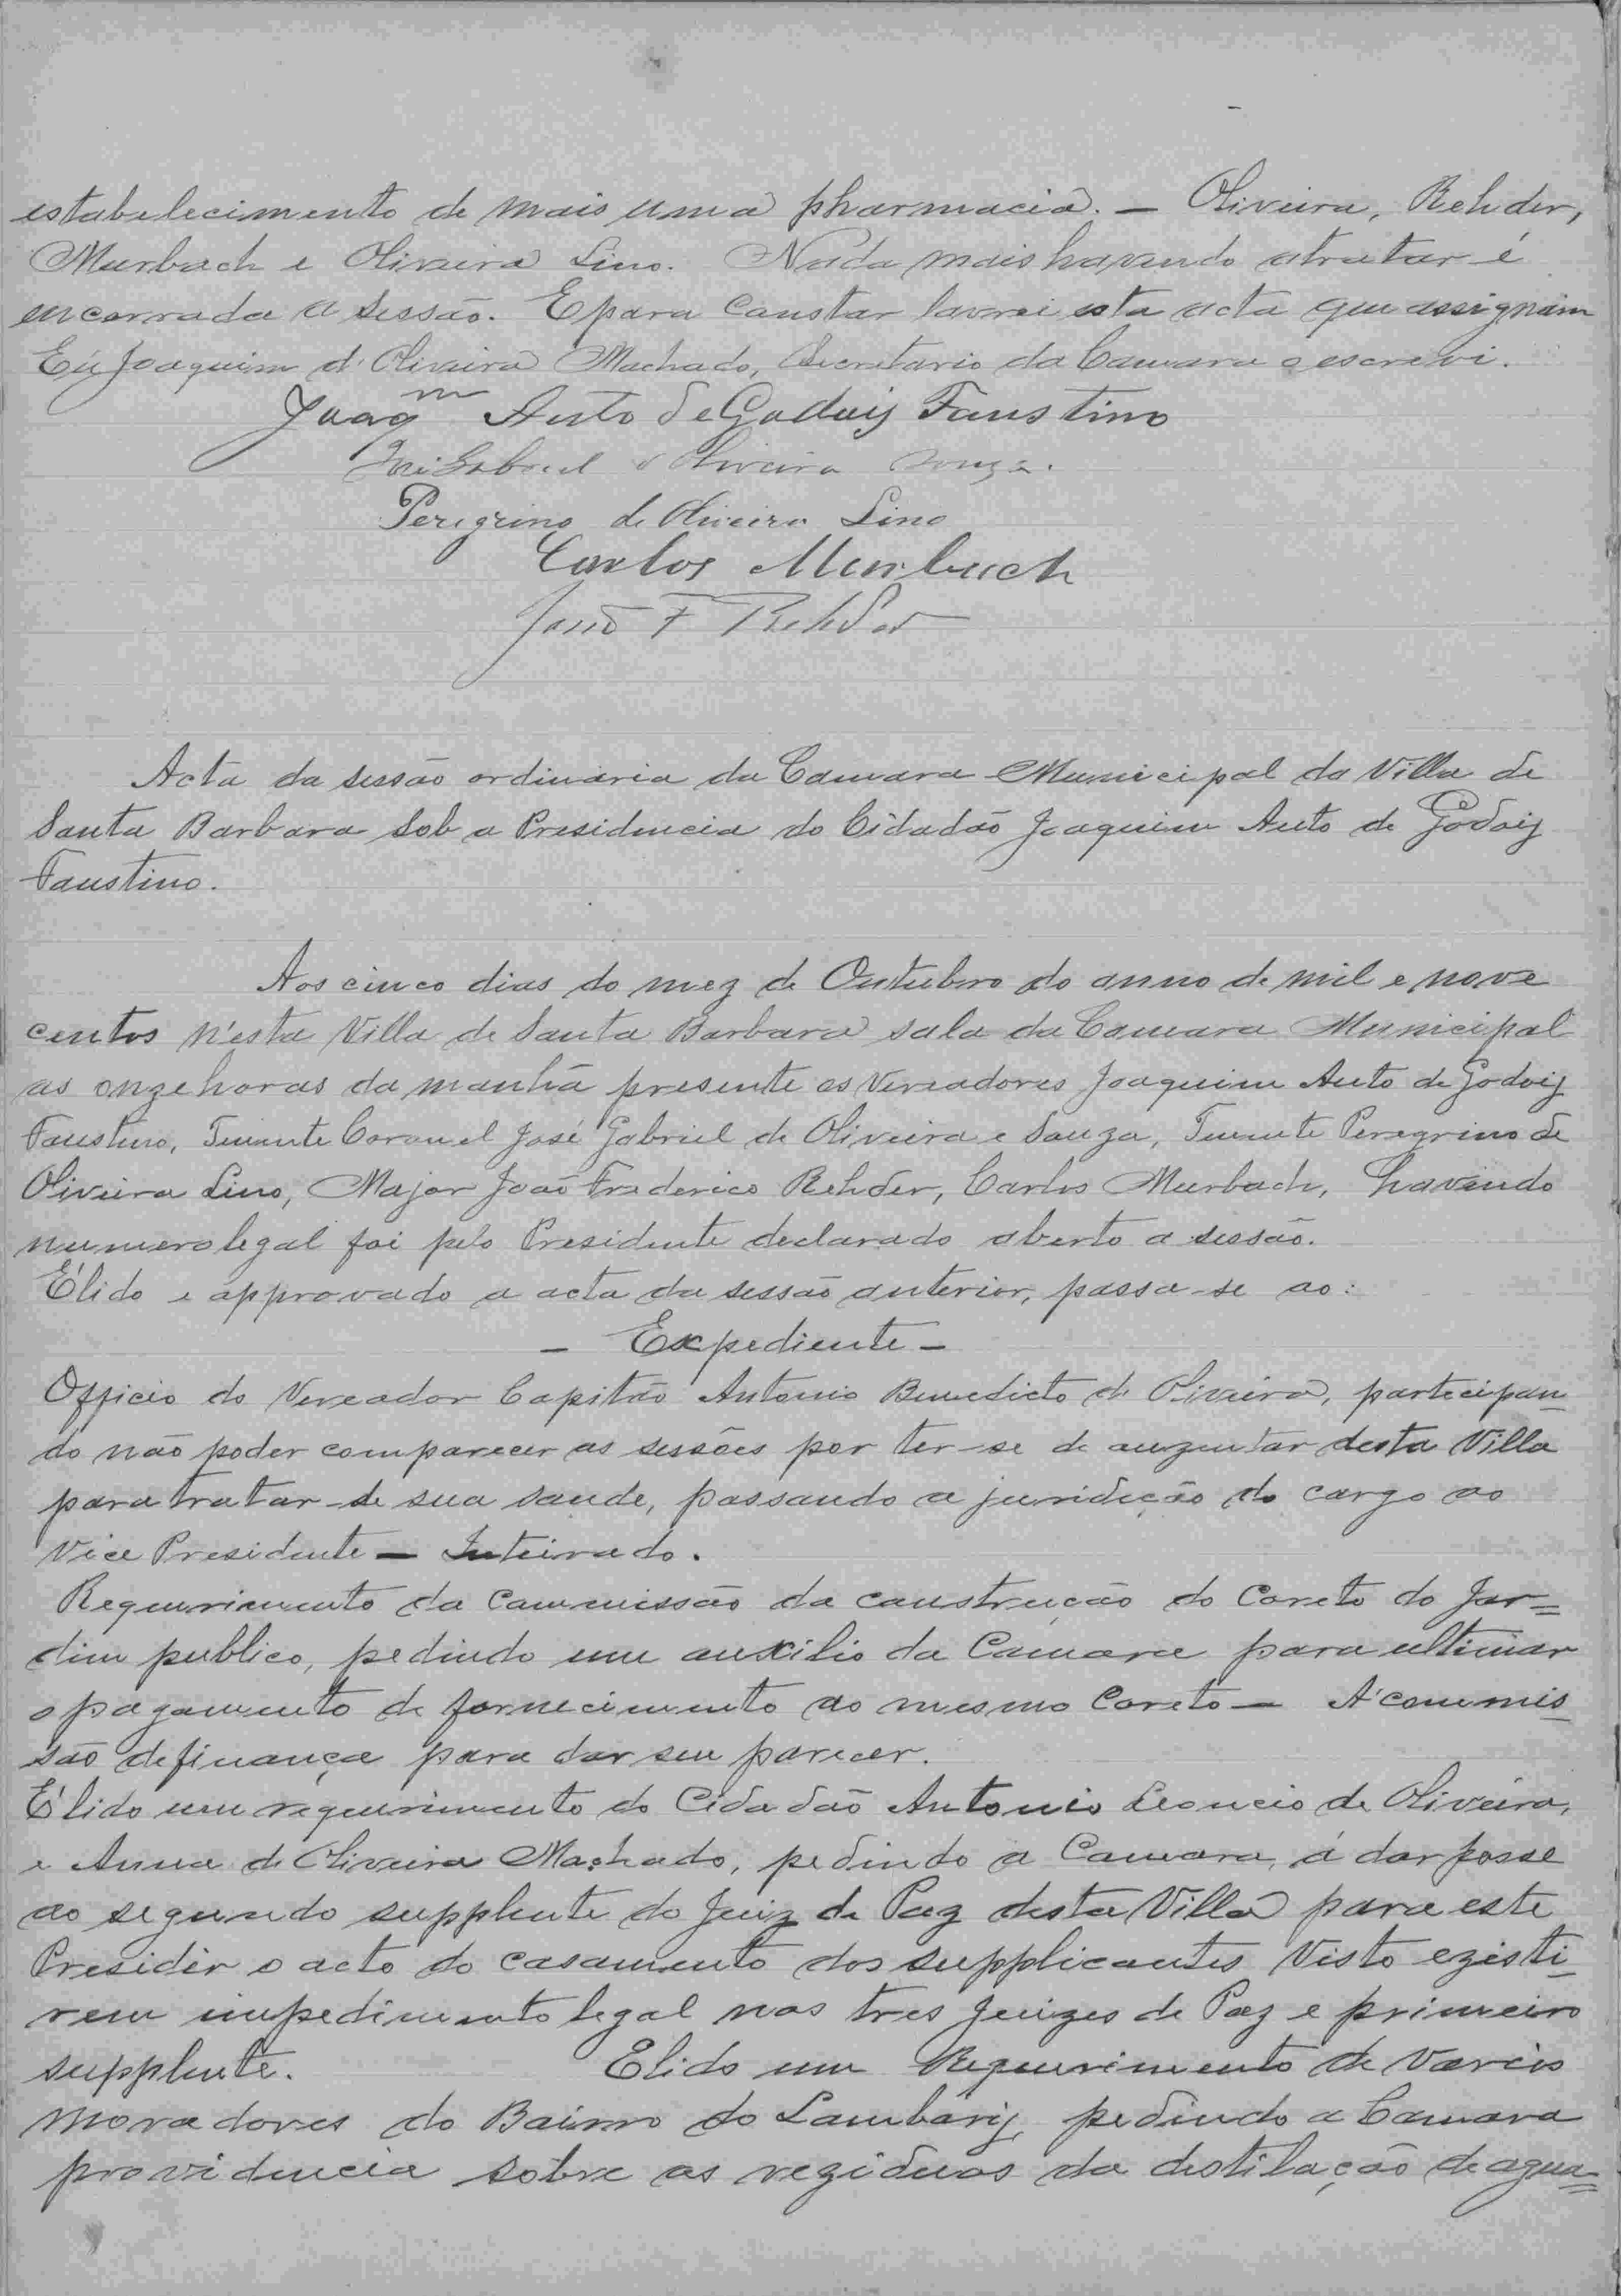 estabelecimento de mais uma pharmacia. — Oliveira, Rehder,
Murbach e Oliveira Lino. Nada mais havendo atratar é
encerrada a sessão. E para constar lavrei esta acta que assignam
Eu Joaquim d'Oliveira Machado, Secretario da Camara o escrevi.
Joaqm Auto de Godoy Faustino
José Gabriel d Oliveira Souza.
Peregrino de Oliveira Lino
Carlos Murbach
João F Rehder
Acta da sessão ordinaria da Camara Municipal da Villa de
Santa Barbara sob a Presidencia do Cidadão Joaquim Auto de Godoiy
Faustino.
Aos cinco dias do mez de Outubro do anno de mil e nove
centos n'esta Villa de Santa Barbara sala da Camara Municipal
as onze horas da manhã presente os Vereadores Joaquim Auto de Godoiy
Faustino, Tenente Coronel José Gabriel de Oliveira e Souza, Tenente Peregrino de
Oliveira Lino, Major João Frederico Rehder, Carlos Murbach, havendo
numero legal foi pelo Presidente declarado aberto a sessão.
É lido e approvado a acta da sessão anterior, passa-se ao:
— Expediente —
Officio do Vereador Capitão Antonio Benedicto de Oliveira, partecipan_
do não poder comparecer as sessões por ter-se de auzentar desta Villa
para tratar-se de sua saude, passando a juridição do cargo ao
Vice Presidente — Inteirado.
Requerimento da Commissão da construção do Coreto do Jar=
dim publico, pedindo um auxilio da Camara para ultimar
o pagamento de fornecimento ao mesmo Coreto — A' commis_
são definança para dar seu parecer.
É lido um requerimento do Cidadão Antonio Leoncio de Oliveira,
e Anna de Oliveira Machado, pedindo a Camara, á dar posse
ao segundo supplente do Juiz de Paz desta Villa para este
Presidir o acto do casamento dos supplicantes Visto ezisti_
rem impedimento legal nos tres Juizes de Paz e primeiro
supplente. E lido um Requerimento de varios
moradores do Bairro do Lambariy, pedindo a Camara
providencia sobre as reziduos da destilação de agua=